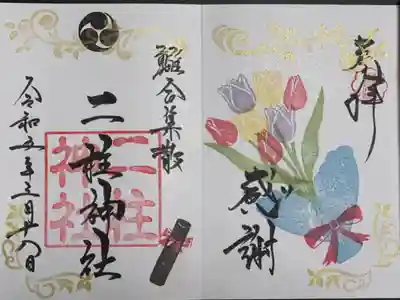 奉拝
感謝
離合集散
二柱神社
二柱神社
令和五年三月十八日